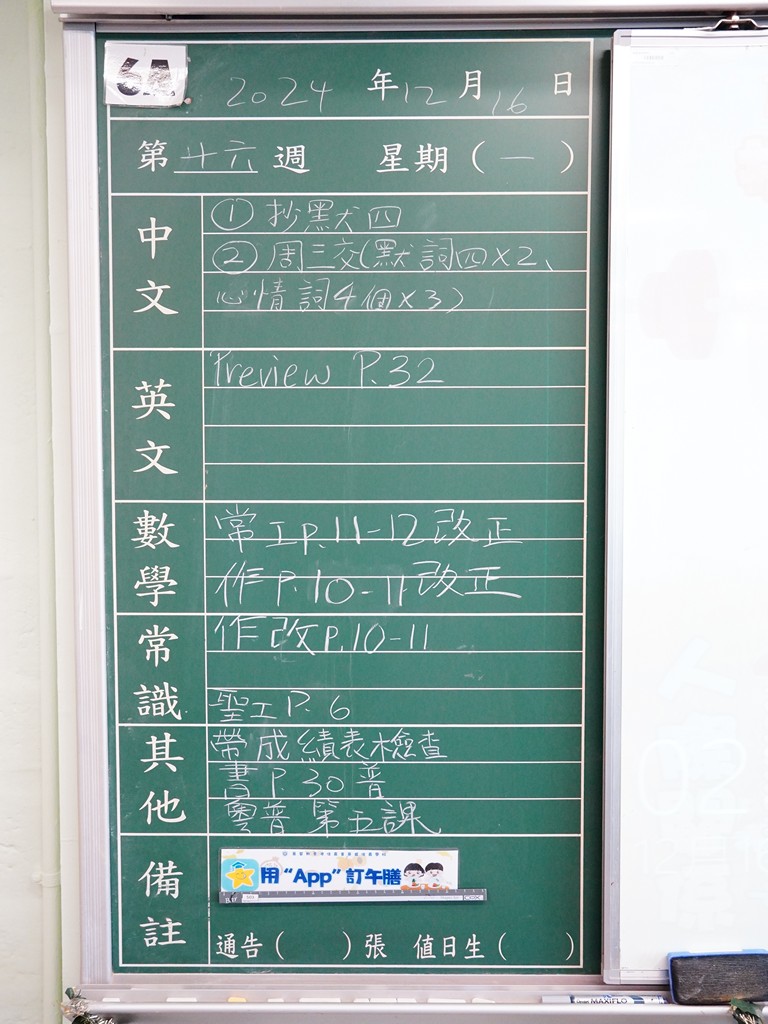 6A
2024 年 12 月 16 日
第 廿六 週 星期 ( 一 )
中文
① 抄默四
② 周三交(默詞四x2、
心情詞4個x3)
英文
Preview P.32
數學
常工P.11-12改正
作P.10-11改正
常識
作改P.10-11
聖工P.6
其他
帶成績表檢查
書P.30普
粵普第五課
備註
用“App”訂午膳
通告( )張 值日生( )
MAXIFLO